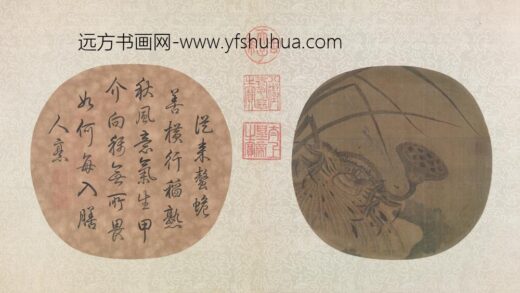 远方书画网-www.yfshuhua.com
從来螯跪
善橫行稻熟
秋風意氣生甲
介向稱無所畏
如何每入膳
人烹